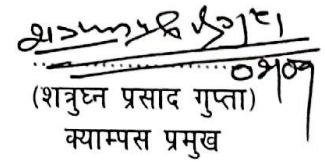 (शत्रुघ्न प्रसाद गुप्ता)
क्याम्पस प्रमुख